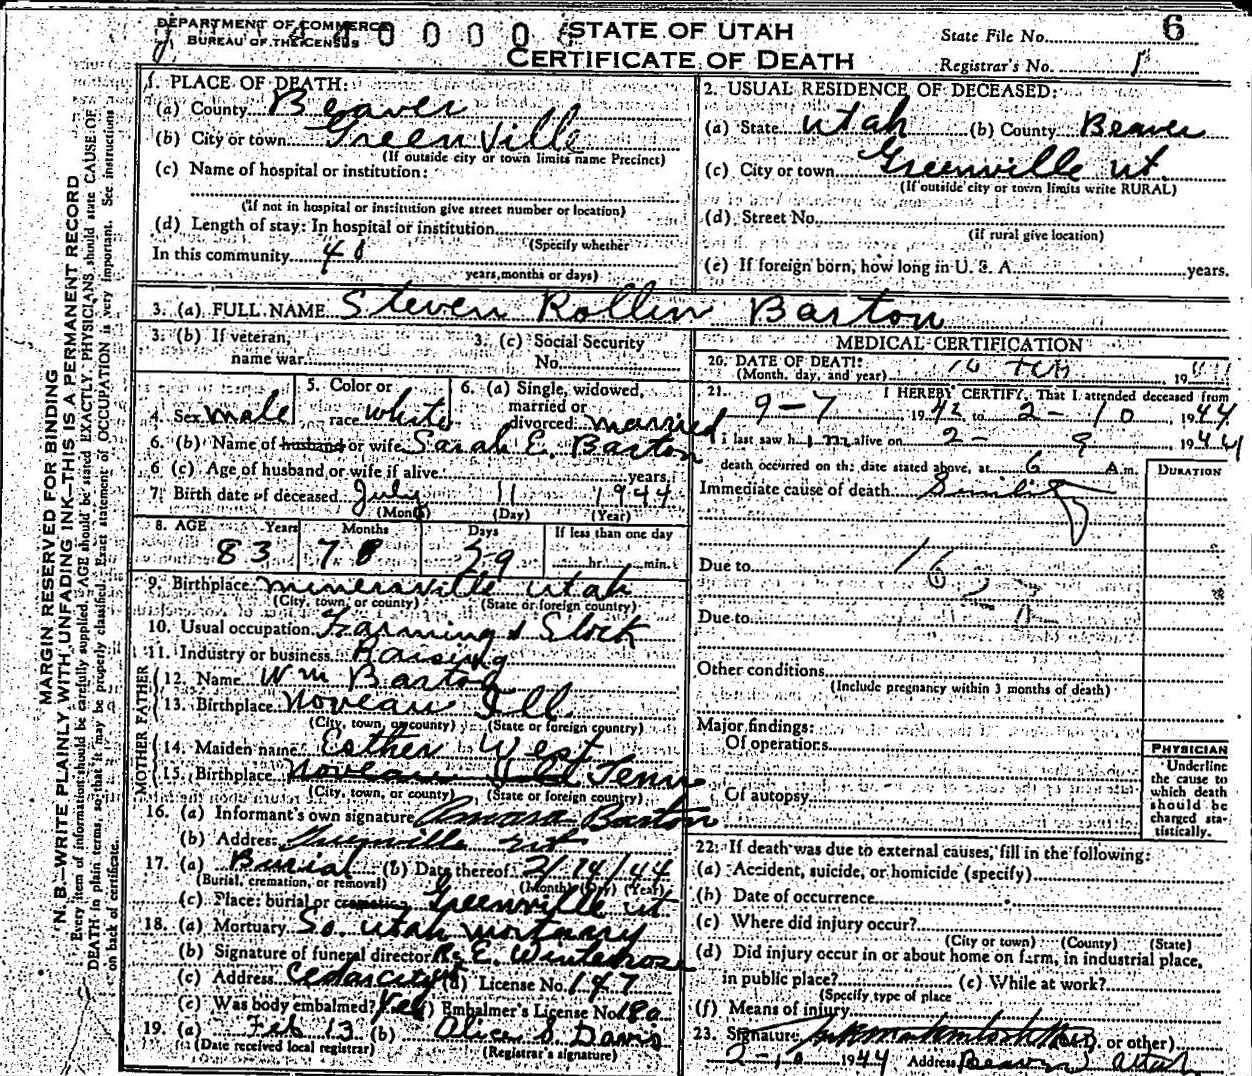 DEPARTMENT OF COMMERCE
BUREAU OF THE CENSUS
STATE OF UTAH
CERTIFICATE OF DEATH
State File No. 6
Registrar's No. 1
MARGIN RESERVED FOR BINDING
N. B.—WRITE PLAINLY WITH UNFADING INK—THIS IS A PERMANENT RECORD
Every item of information should be carefully supplied. AGE should be stated EXACTLY. PHYSICIANS should state CAUSE OF
DEATH in plain terms, so that it may be properly classified. Exact statement of OCCUPATION is very important. See instructions
on back of certificate.
1. PLACE OF DEATH:
(a) County Beaver
(b) City or town Greenville
(If outside city or town limits name Precinct)
(c) Name of hospital or institution:
(If not in hospital or institution give street number or location)
(d) Length of stay: In hospital or institution
(Specify whether
In this community 40
years, months or days)
2. USUAL RESIDENCE OF DECEASED:
(a) State Utah (b) County Beaver
(c) City or town Greenville Ut.
(If outside city or town limits write RURAL)
(d) Street No.
(If rural give location)
(e) If foreign born, how long in U. S. A. years.
3. (a) FULL NAME Steven Rollin Barton
3. (b) If veteran, name war
3. (c) Social Security No.
4. Sex male
5. Color or race white
6. (a) Single, widowed, married or divorced married
6. (b) Name of husband or wife Sarah E. Barton
6 (c) Age of husband or wife if alive years.
7. Birth date of deceased July 11 1944
(Month) (Day) (Year)
8. AGE Years Months Days If less than one day
83 7 29 hr. min.
9. Birthplace Minersville Utah
(City, town, or county) (State or foreign country)
10. Usual occupation Farming & Stock
11. Industry or business Raising
FATHER
12. Name Wm Barton
13. Birthplace Noveau Ill.
(City, town, or county) (State or foreign country)
MOTHER
14. Maiden name Esther West
15. Birthplace Noveau Tenn
(City, town, or county) (State or foreign country)
16. (a) Informant's own signature Barton
(b) Address Greenville Ut
17. (a) Burial (b) Date thereof 2/14/44
(Burial, cremation, or removal) (Month) (Day) (Year)
(c) Place: burial or cremation Greenville Ut
18. (a) Mortuary So. Utah Mortuary
(b) Signature of funeral director R. E. Winterrose
(c) Address Cedar City Ut (d) License No. 147
(e) Was body embalmed? Yes (f) Embalmer's License No. 180
19. (a) Feb 13 (b) Alice S. Davis
(Date received local registrar) (Registrar's signature)
MEDICAL CERTIFICATION
20. DATE OF DEATH: 10
(Month, day, and year) 19
21. I HEREBY CERTIFY, That I attended deceased from
9-7 1942 to 2-10 1944
I last saw him alive on 2-9 1944
death occurred on the date stated above, at 6 A.m.
DURATION
Immediate cause of death Senility
Due to
Due to
Other conditions
(Include pregnancy within 3 months of death)
Major findings:
Of operations
Of autopsy
PHYSICIAN
Underline
the cause to
which death
should be
charged sta-
tistically.
22. If death was due to external causes, fill in the following:
(a) Accident, suicide, or homicide (specify)
(b) Date of occurrence
(c) Where did injury occur?
(City or town) (County) (State)
(d) Did injury occur in or about home on farm, in industrial place,
in public place? (e) While at work?
(Specify type of place
(f) Means of injury
23. Signature (M.D. or other)
2-10 1944 Address Beaver Utah